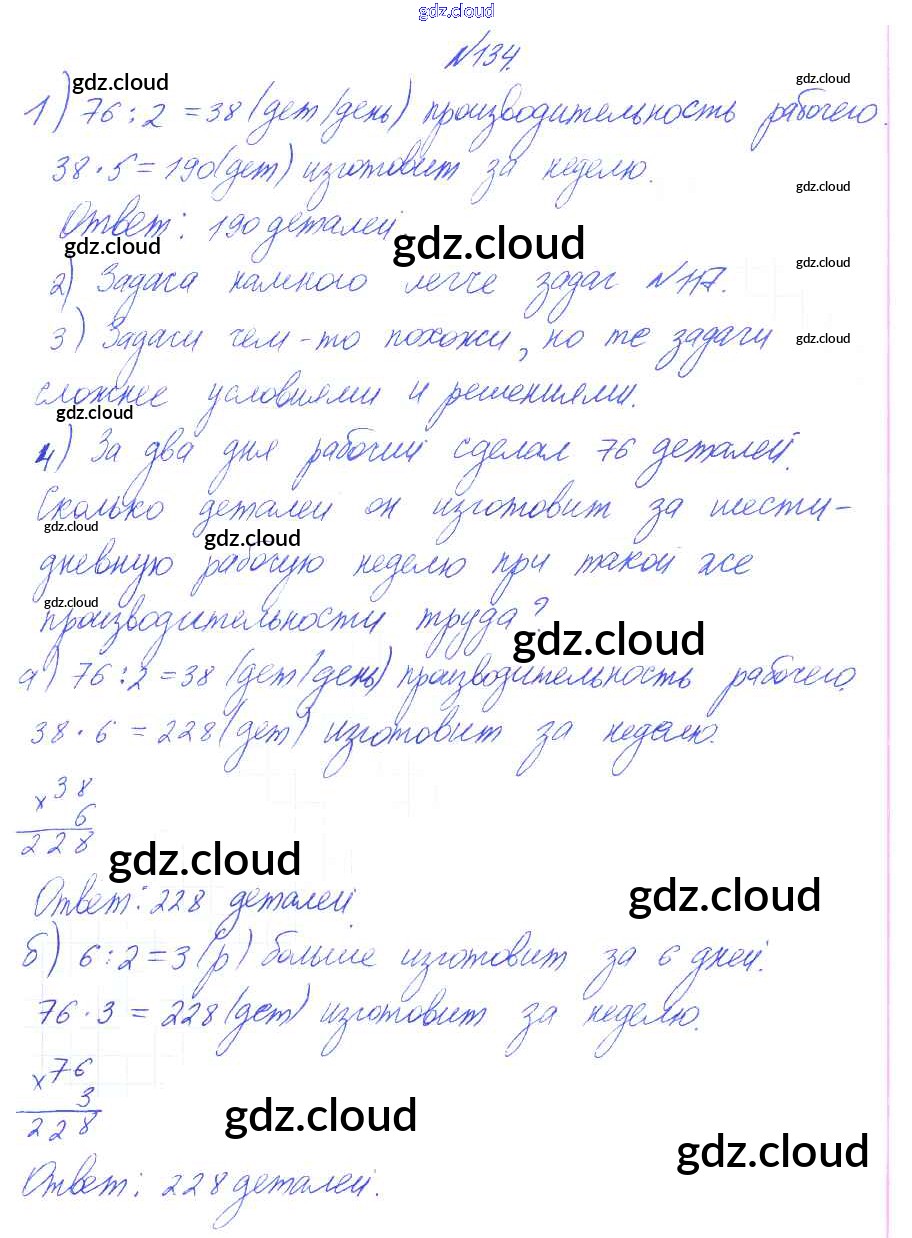 gdz.cloud
№134.
gdz.cloud gdz.cloud
1) 76 : 2 = 38 (дет/день) производительность рабочего.
38 · 5 = 190 (дет) изготовит за неделю.
gdz.cloud
Ответ: 190 деталей.
gdz.cloud gdz.cloud gdz.cloud
2) Задача намного легче задач №117.
3) Задачи чем-то похожи, но те задачи
gdz.cloud
сложнее условиями и решениями.
gdz.cloud
4) За два дня рабочий сделал 76 деталей.
Сколько деталей он изготовит за шести-
gdz.cloud gdz.cloud
дневную рабочую неделю при такой же
gdz.cloud
производительности труда?
gdz.cloud
а) 76 : 2 = 38 (дет/день) производительность рабочего.
38 · 6 = 228 (дет) изготовит за неделю.
× 38
6
228
gdz.cloud
Ответ: 228 деталей.
gdz.cloud
б) 6 : 2 = 3 (р) больше изготовит за 6 дней.
76 · 3 = 228 (дет) изготовит за неделю.
× 76
3
228
gdz.cloud
gdz.cloud
Ответ: 228 деталей.